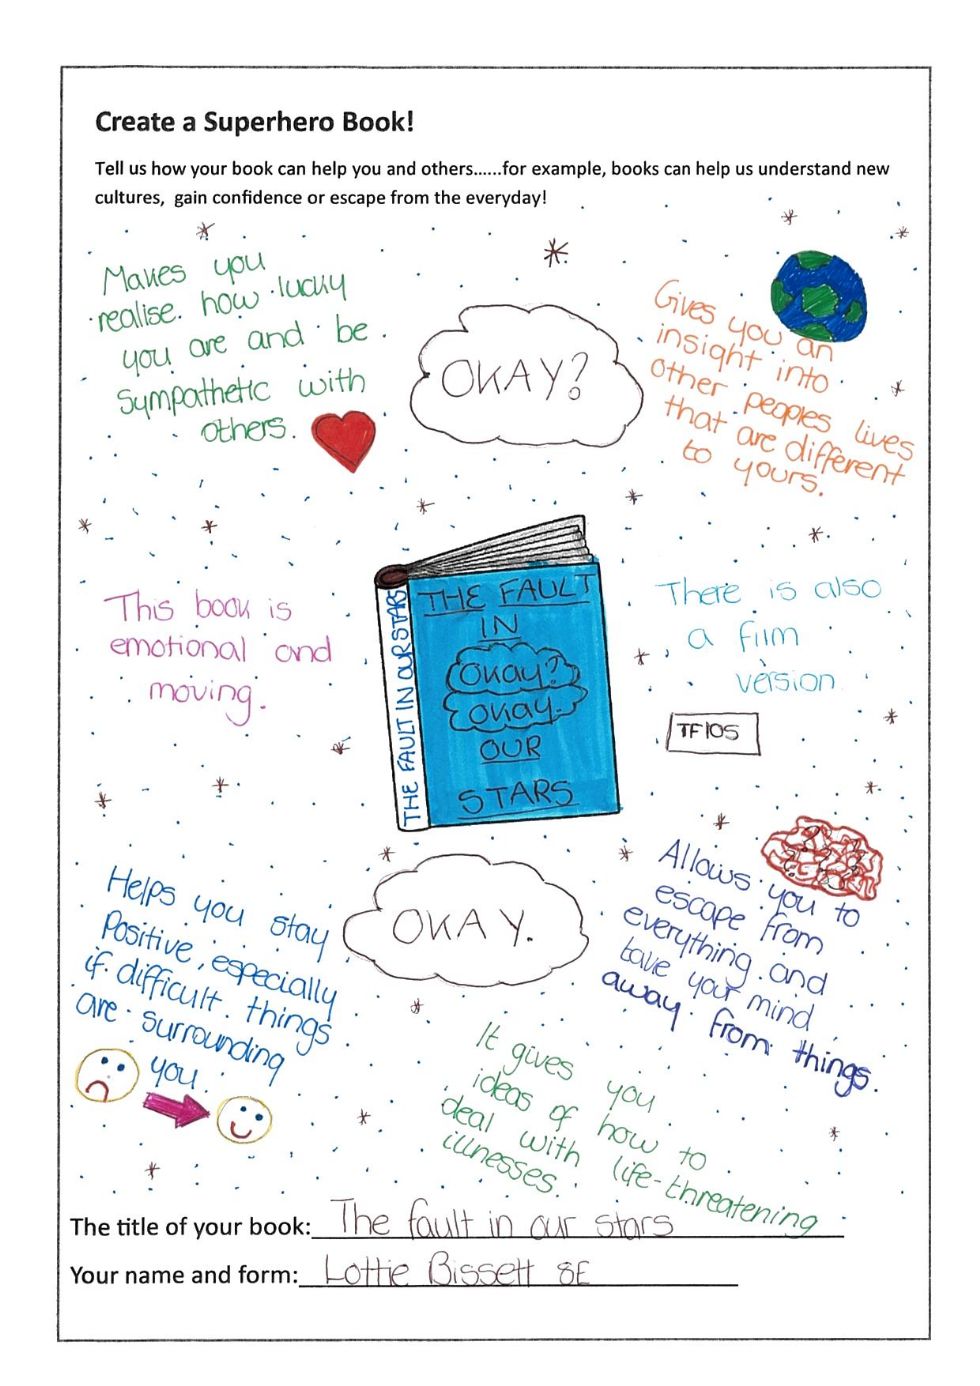 Create a Superhero Book!
Tell us how your book can help you and others......for example, books can help us understand new
cultures,  gain confidence or escape from the everyday!
Makes you
realise how lucky
you are and be
sympathetic with
others.
OKAY?
Gives you an
insight into
other peoples lives
that are different
to yours.
This book is
emotional and
moving.
THE FAULT IN OUR STARS
THE FAULT
IN
Okay?
Okay.
OUR
STARS
There is also
a film
version
TFIOS
Helps you stay
Positive, especially
if difficult things
are surrounding
you.
OKAY.
Allows you to
escape from
everything and
take your mind
away from things.
It gives you
ideas of how to
deal with life-threatening
illnesses.
The title of your book: The fault in our stars
Your name and form: Lottie Bissett 8E